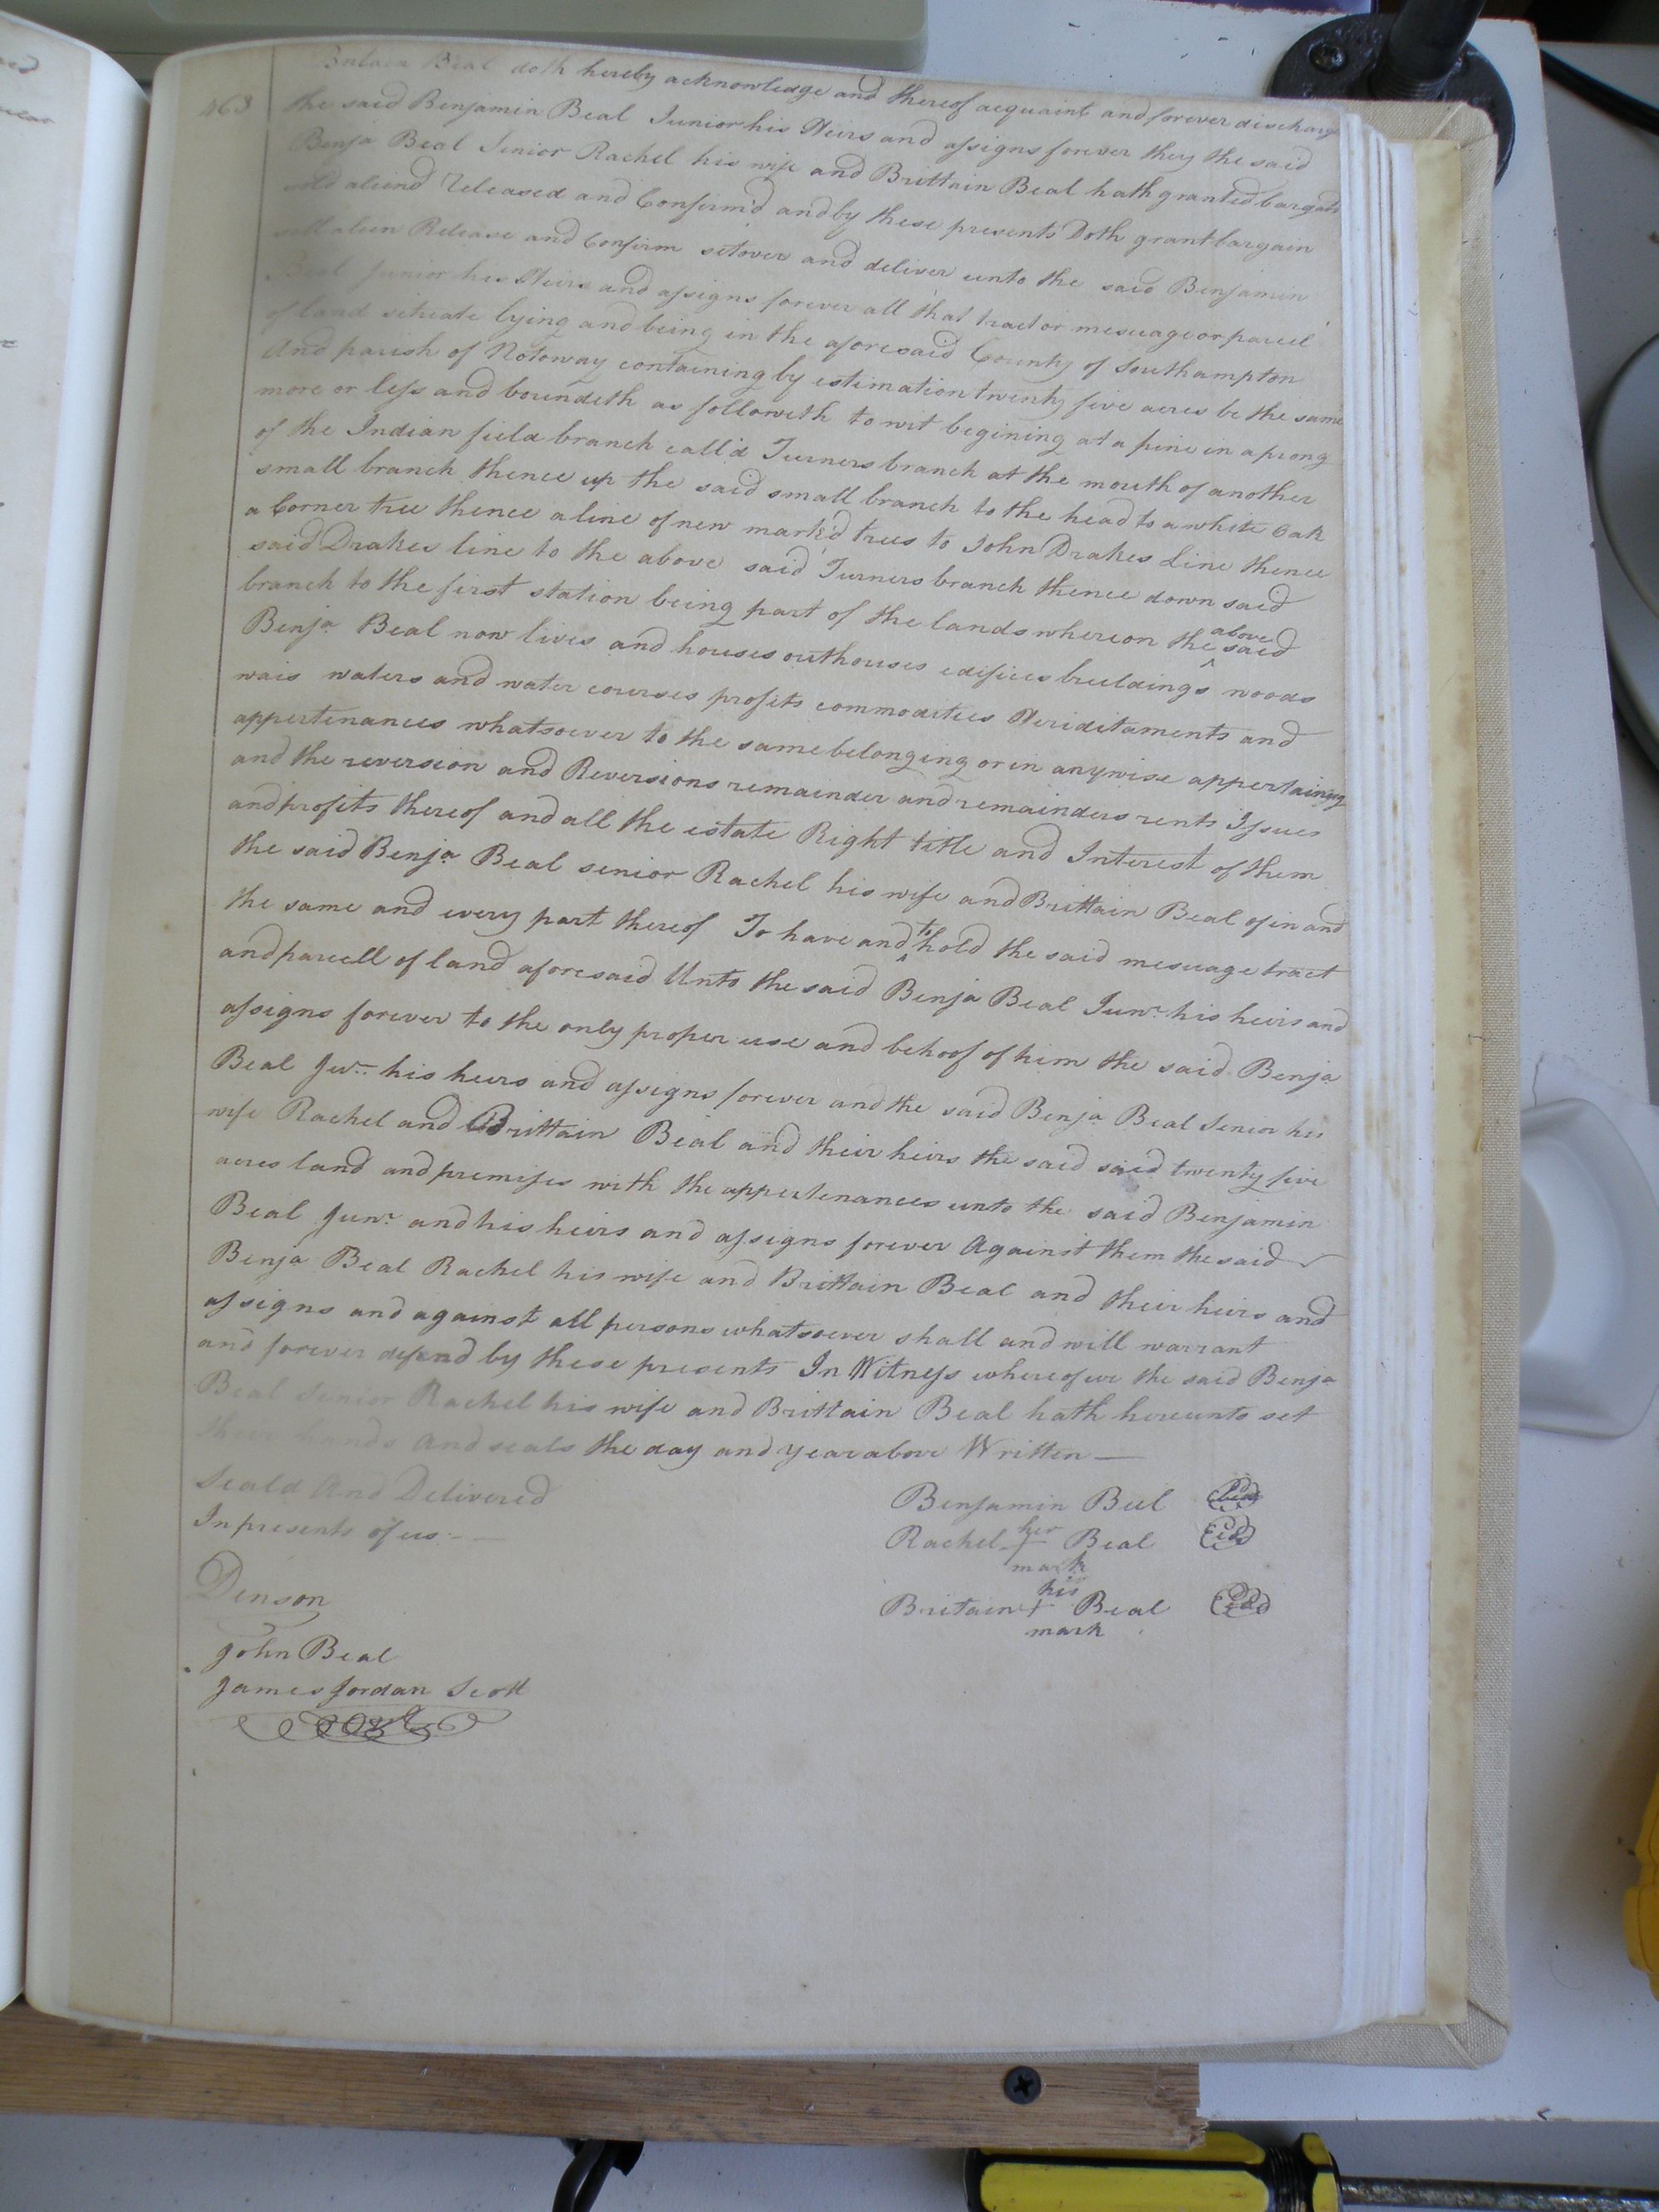 Beal doth hereby acknowledge and thereof acquaint and forever discharge
463 the said Benjamin Beal Junior his Heirs and assigns forever they the said
Benja Beal Senior Rachel his wife and Brittain Beal hath granted bargain
sold aliend released and Confirm'd and by these presents Doth grant bargain
sell alien Release and Confirm setover and deliver unto the said Benjamin
Beal Junior his Heirs and assigns forever all that tract or mesuage or parcel
of land situate lying and being in the aforesaid County of Southampton
And parish of Notoway containing by estimation twenty five acres be the same
more or less and boundeth as followeth to wit begining at a pine in a prong
of the Indian field branch call'd Turners branch at the mouth of another
small branch thence up the said small branch to the head to a white Oak
a Corner tree thence a line of new mark'd trees to John Drakes Line thence
said Drakes line to the above said Turners branch thence down said
branch to the first station being part of the lands whereon the above said
Benja Beal now lives and houses outhouses edifices buildings woods
wais waters and water courses profits commodities Heriditaments and
appertenances whatsoever to the same belonging or in anywise appertaining
and the reversion and Reversions remainder and remainders rents Issues
and profits thereof and all the estate Right title and Interest of them
the said Benja Beal senior Rachel his wife and Brittain Beal of in and
the same and every part thereof To have and to hold the said mesuage tract
and parcell of land aforesaid Unto the said Benja Beal Junr his heirs and
assigns forever to the only proper use and behoof of him the said Benja
Beal Jur his heirs and assigns forever and the said Benja Beal Senior his
wife Rachel and Brittain Beal and their heirs the said said twenty five
acres land and premises with the appertenances unto the said Benjamin
Beal Junr and his heirs and assigns forever Against them the said
Benja Beal Rachel his wife and Brittain Beal and their heirs and
assigns and against all persons whatsoever shall and will warrant
and forever defend by these presents In Witness whereof we the said Benja
Beal Senior Rachel his wife and Brittain Beal hath hereunto set
their hands And seals the day and year above Written —
Seald And Delivered
In presents of us —
Benjamin Beel
Rachel her + mark Beal
Britain his + mark Beal
Denson
John Beal
James Jordan Scott